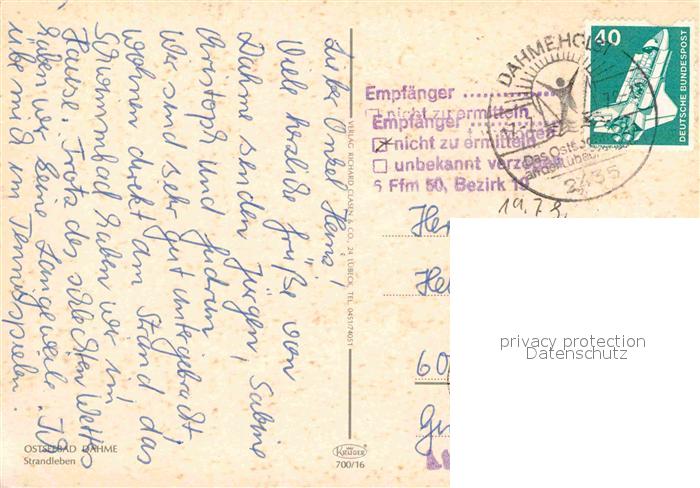 Lieber Onkel Heinz!
Viele herzliche Grüße von
Dahme senden Jürgen, Sabine
Christoph und Gudrun
Wir sind sehr gut untergebracht
wohnen direkt am Strand das
Schwimmbad haben wir im
Hause. Trotz des schlechten Wetters
haben wir keine Langeweile. Ich
übe mich im Tennisspielen.
OSTSEEBAD DAHME
Strandleben
VERLAG RICHARD CLASEN & CO., 24 LÜBECK, TEL. 0451/74051
KRÜGER
700/16
Empfänger
nicht zu ermitteln
Empfänger
nicht zu ermitteln
unbekannt verzogen
6 Ffm 50, Bezirk 19
DAHME HOLST
Das Ostseebad
2435
40
DEUTSCHE BUNDESPOST
19.7.8.
60
privacy protection
Datenschutz